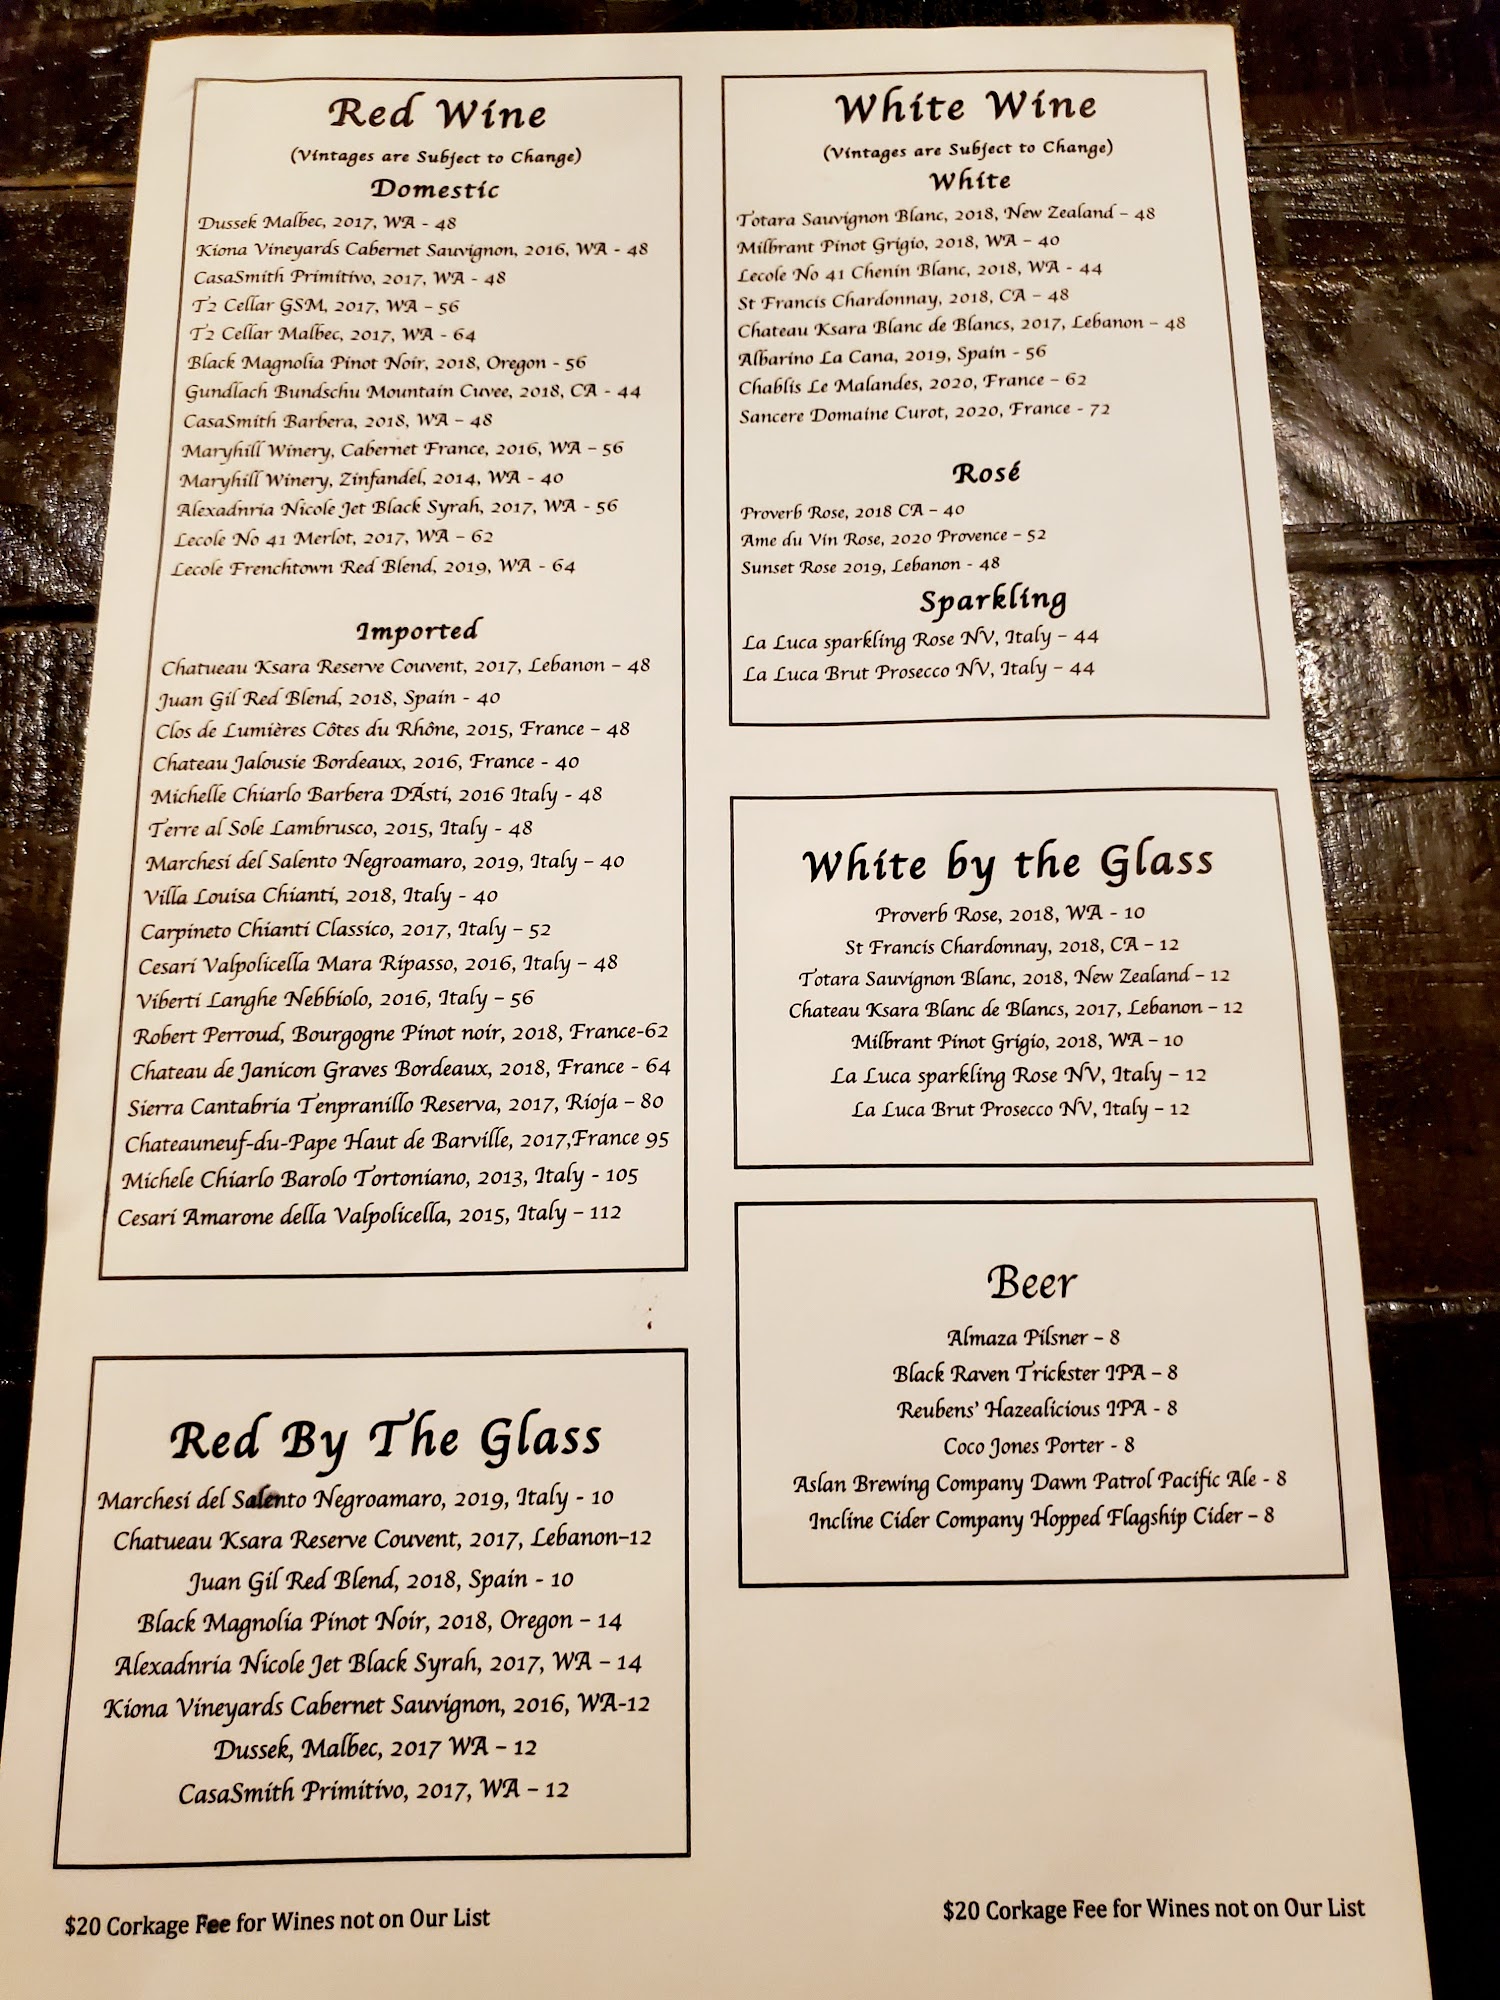 Red Wine
(Vintages are Subject to Change)
Domestic
Dussek Malbec, 2017, WA - 48
Kiona Vineyards Cabernet Sauvignon, 2016, WA - 48
CasaSmith Primitivo, 2017, WA - 48
T2 Cellar GSM, 2017, WA – 56
T2 Cellar Malbec, 2017, WA - 64
Black Magnolia Pinot Noir, 2018, Oregon - 56
Gundlach Bundschu Mountain Cuvee, 2018, CA - 44
CasaSmith Barbera, 2018, WA – 48
Maryhill Winery, Cabernet France, 2016, WA – 56
Maryhill Winery, Zinfandel, 2014, WA - 40
Alexadnria Nicole Jet Black Syrah, 2017, WA - 56
Lecole No 41 Merlot, 2017, WA – 62
Lecole Frenchtown Red Blend, 2019, WA - 64
Imported
Chatueau Ksara Reserve Couvent, 2017, Lebanon – 48
Juan Gil Red Blend, 2018, Spain - 40
Clos de Lumières Côtes du Rhône, 2015, France – 48
Chateau Jalousie Bordeaux, 2016, France - 40
Michelle Chiarlo Barbera DÁsti, 2016 Italy - 48
Terre al Sole Lambrusco, 2015, Italy - 48
Marchesi del Salento Negroamaro, 2019, Italy – 40
Villa Louisa Chianti, 2018, Italy - 40
Carpineto Chianti Classico, 2017, Italy – 52
Cesari Valpolicella Mara Ripasso, 2016, Italy – 48
Viberti Langhe Nebbiolo, 2016, Italy – 56
Robert Perroud, Bourgogne Pinot noir, 2018, France-62
Chateau de Janicon Graves Bordeaux, 2018, France - 64
Sierra Cantabria Tenpranillo Reserva, 2017, Rioja – 80
Chateauneuf-du-Pape Haut de Barville, 2017,France 95
Michele Chiarlo Barolo Tortoniano, 2013, Italy - 105
Cesari Amarone della Valpolicella, 2015, Italy – 112
Red By The Glass
Marchesi del Salento Negroamaro, 2019, Italy - 10
Chatueau Ksara Reserve Couvent, 2017, Lebanon–12
Juan Gil Red Blend, 2018, Spain - 10
Black Magnolia Pinot Noir, 2018, Oregon – 14
Alexadnria Nicole Jet Black Syrah, 2017, WA – 14
Kiona Vineyards Cabernet Sauvignon, 2016, WA-12
Dussek, Malbec, 2017 WA – 12
CasaSmith Primitivo, 2017, WA – 12
$20 Corkage Fee for Wines not on Our List
White Wine
(Vintages are Subject to Change)
White
Totara Sauvignon Blanc, 2018, New Zealand – 48
Milbrant Pinot Grigio, 2018, WA – 40
Lecole No 41 Chenin Blanc, 2018, WA - 44
St Francis Chardonnay, 2018, CA – 48
Chateau Ksara Blanc de Blancs, 2017, Lebanon – 48
Albarino La Cana, 2019, Spain - 56
Chablis Le Malandes, 2020, France – 62
Sancere Domaine Curot, 2020, France - 72
Rosé
Proverb Rose, 2018 CA – 40
Ame du Vin Rose, 2020 Provence – 52
Sunset Rose 2019, Lebanon - 48
Sparkling
La Luca sparkling Rose NV, Italy – 44
La Luca Brut Prosecco NV, Italy – 44
White by the Glass
Proverb Rose, 2018, WA - 10
St Francis Chardonnay, 2018, CA – 12
Totara Sauvignon Blanc, 2018, New Zealand – 12
Chateau Ksara Blanc de Blancs, 2017, Lebanon – 12
Milbrant Pinot Grigio, 2018, WA – 10
La Luca sparkling Rose NV, Italy – 12
La Luca Brut Prosecco NV, Italy – 12
Beer
Almaza Pilsner – 8
Black Raven Trickster IPA – 8
Reubens' Hazealicious IPA - 8
Coco Jones Porter - 8
Aslan Brewing Company Dawn Patrol Pacific Ale - 8
Incline Cider Company Hopped Flagship Cider – 8
$20 Corkage Fee for Wines not on Our List